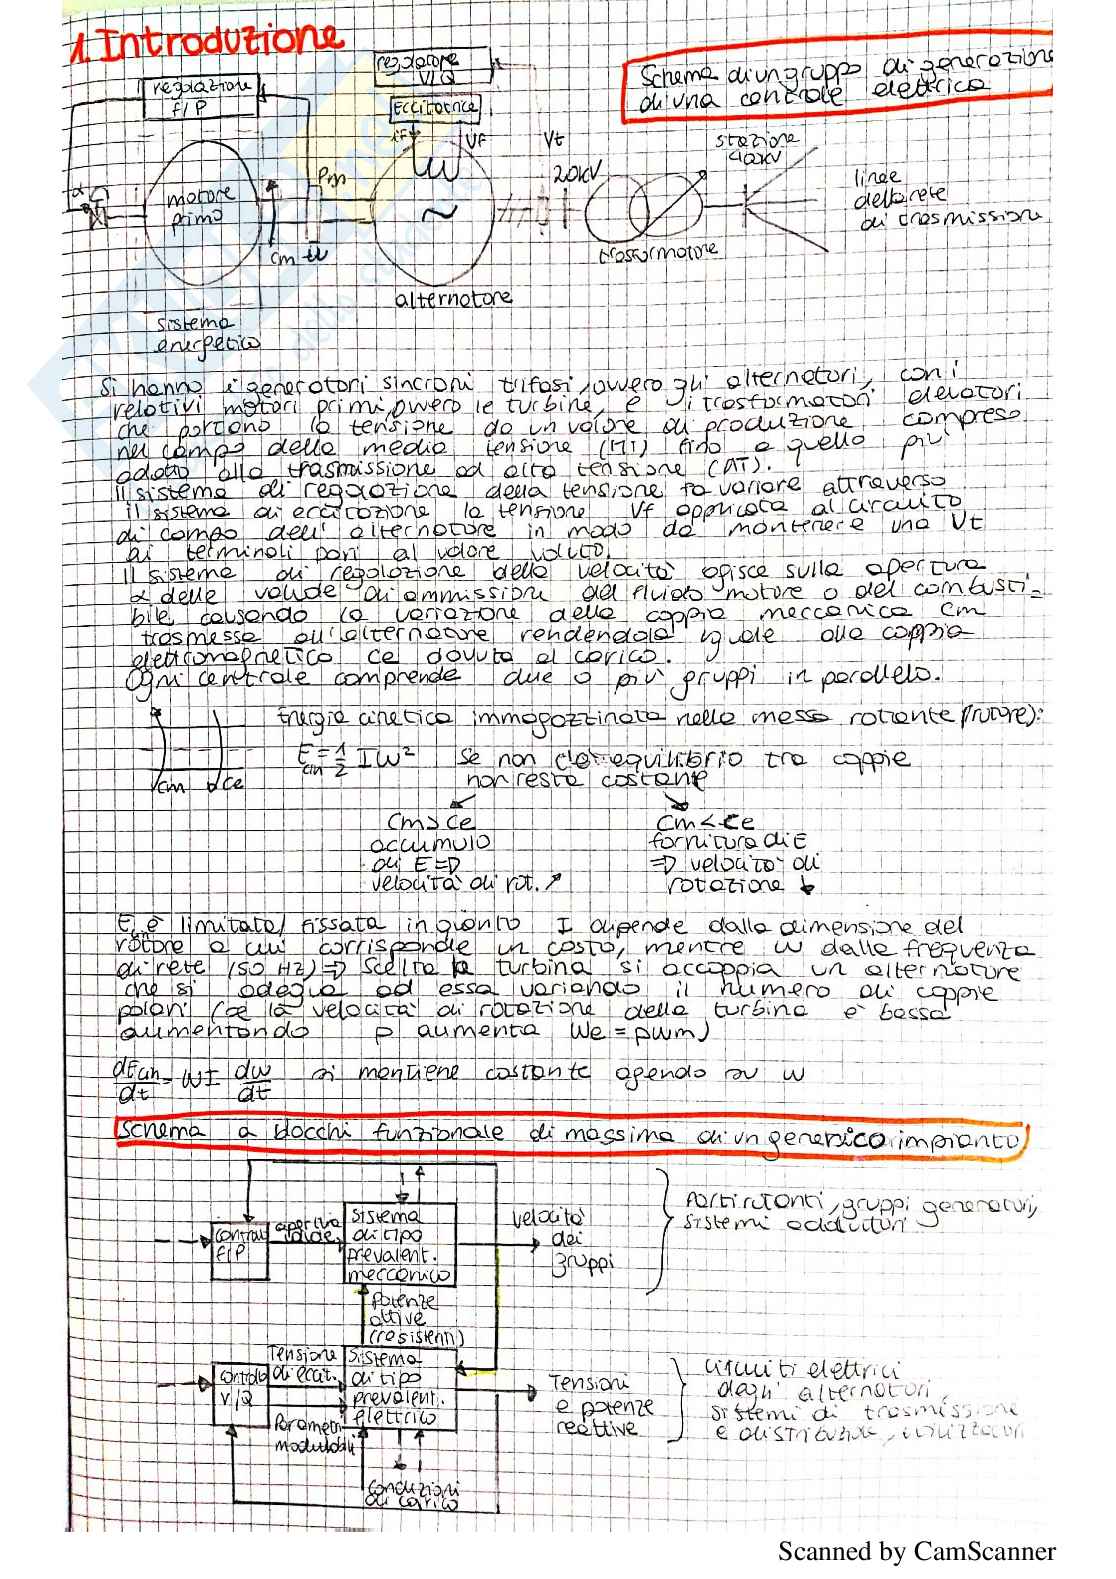 1. Introduzione
Schema di un gruppo di generazione
di una centrale elettrica
regolatore
V/Q
regolazione
f/P
Eccitatrice
if
Vf
Vt
20kV
stazione
linee
della rete
di trasmissione
α
motore
primo
Pm
~
Cm
ω
trasformatore
alternatore
sistema
energetico
Si hanno i generatori sincroni trifasi, ovvero gli alternatori, con i
relativi motori primi, ovvero le turbine, e i trasformatori elevatori
che portano la tensione da un valore di produzione compreso
nel campo della media tensione (MT) fino a quello più
adatto alla trasmissione ad alta tensione (AT).
Il sistema di regolazione della tensione fa variare attraverso
il sistema di eccitazione la tensione Vf applicata al circuito
di campo dell'alternatore in modo da mantenere una Vt
ai terminali pari al valore voluto.
Il sistema di regolazione della velocità agisce sulla apertura
α delle valvole di ammissione del fluido motore o del combusti=
bile causando la variazione della coppia meccanica Cm
trasmessa all'alternatore rendendola uguale alla coppia
elettromagnetica Ce dovuta al carico.
Ogni centrale comprende due o più gruppi in parallelo.
Energia cinetica immagazzinata nella massa rotante (rotore):
Ecin = 1/2 Iω² se non c'è equilibrio tra coppie
non resta costante
Cm Ce
Cm>Ce
accumulo
di E ⇒
velocità di rot. ↗
Cm<Ce
fornitura di E
⇒ velocità di
rotazione ↓
E è limitata/fissata in quanto I dipende dalla dimensione del
rotore a cui corrisponde un costo, mentre ω dalla frequenza
di rete (50 Hz) ⇒ Scelta la turbina si accoppia un alternatore
che si adegua ad essa variando il numero di coppie
polari (se la velocità di rotazione della turbina è bassa
aumentando p aumenta ωe = pωm)
dEcin/dt = ωI dω/dt si mantiene costante agendo su ω
Schema a blocchi funzionale di massima di un generico impianto
controllo
f/P
apertura
valvole
sistema
di tipo
prevalent.
meccanico
velocità
dei
gruppi
Parti rotanti, gruppi generatori,
sistemi adduttori
potenze
attive
(resistenti)
controllo
V/Q
Tensione
di eccit.
Parametri
modulabili
Sistema
di tipo
prevalent.
elettrico
Tensioni
e potenze
reattive
circuiti elettrici
degli alternatori,
sistemi di trasmissione
e distribuzione, utilizzatori
condizioni
di carico
Scanned by CamScanner